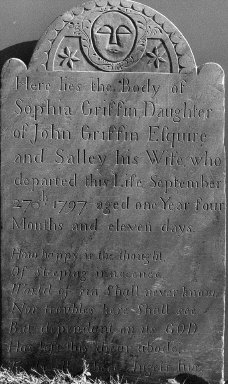 Here lies the Body of
Sophia Griffin Daughter
of John Griffin Esquire
and Salley his Wife, who
departed this Life September
27th 1797 aged one Year four
Months and eleven days.
How happy is the thought,
Of sleeping innocence
World of sin Shall never know
Nor troubles here Shall see
But dependent on its GOD
Has left his abode